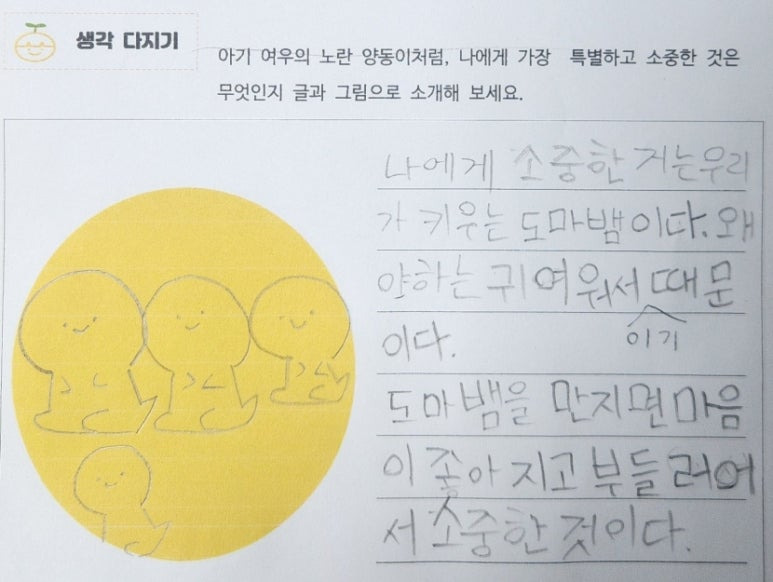 생각 다지기
아기 여우의 노란 양동이처럼, 나에게 가장 특별하고 소중한 것은
무엇인지 글과 그림으로 소개해 보세요.
나에게 소중한 거는우리
가 키우는 도마뱀이다. 왜
야하는 귀여워서 때문
이기
이다.
도마뱀을 만지면 마음
이 좋아 지고 부들 러어
서 소중한 것이다.